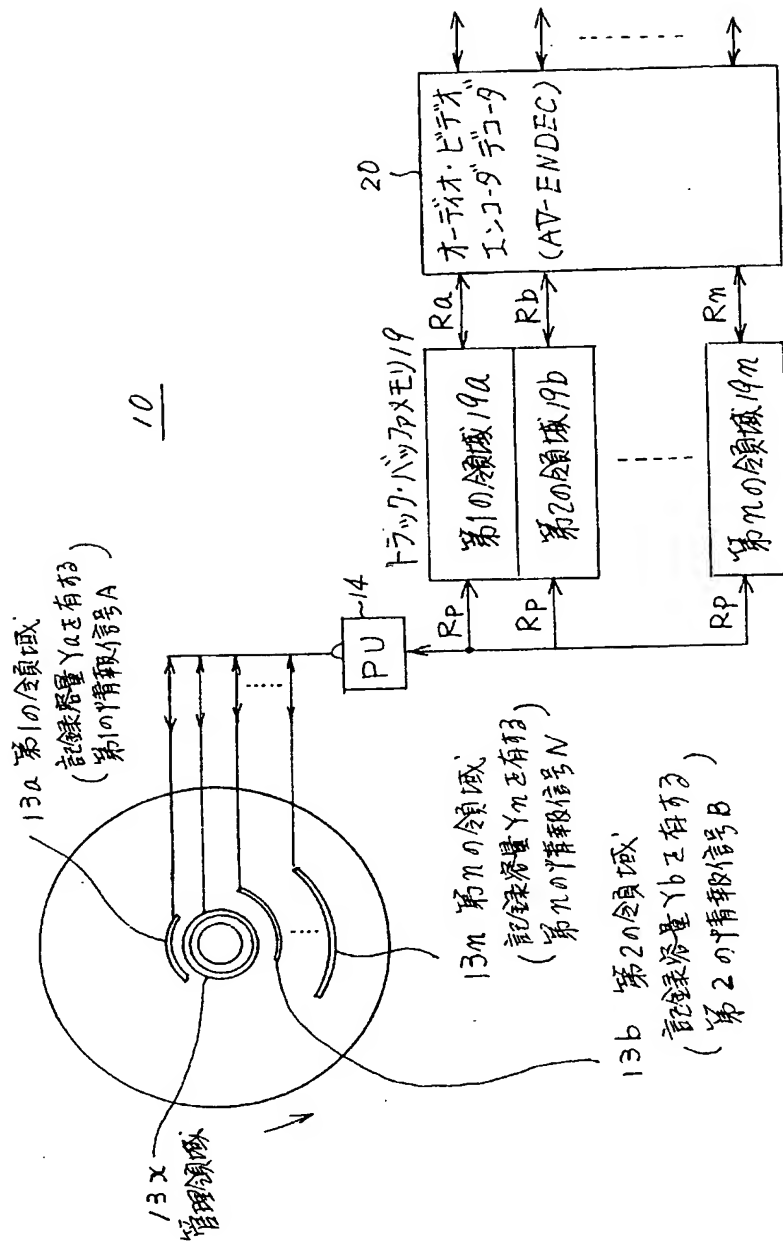 10
13a 第1の領域
(記録容量Yaを有する
第1の情報信号A)
13x
管理領域
13n 第nの領域
(記録容量Ynを有する
第nの情報信号N)
13b 第2の領域
(記録容量Ybを有する
第2の情報信号B)
PU
14
トラック・バッファメモリ19
Rp
第1の領域19a
Ra
Rp
第2の領域19b
Rb
Rp
第nの領域19n
Rn
20
オーディオ・ビデオ
エンコーダデコーダ
(AV-ENDEC)